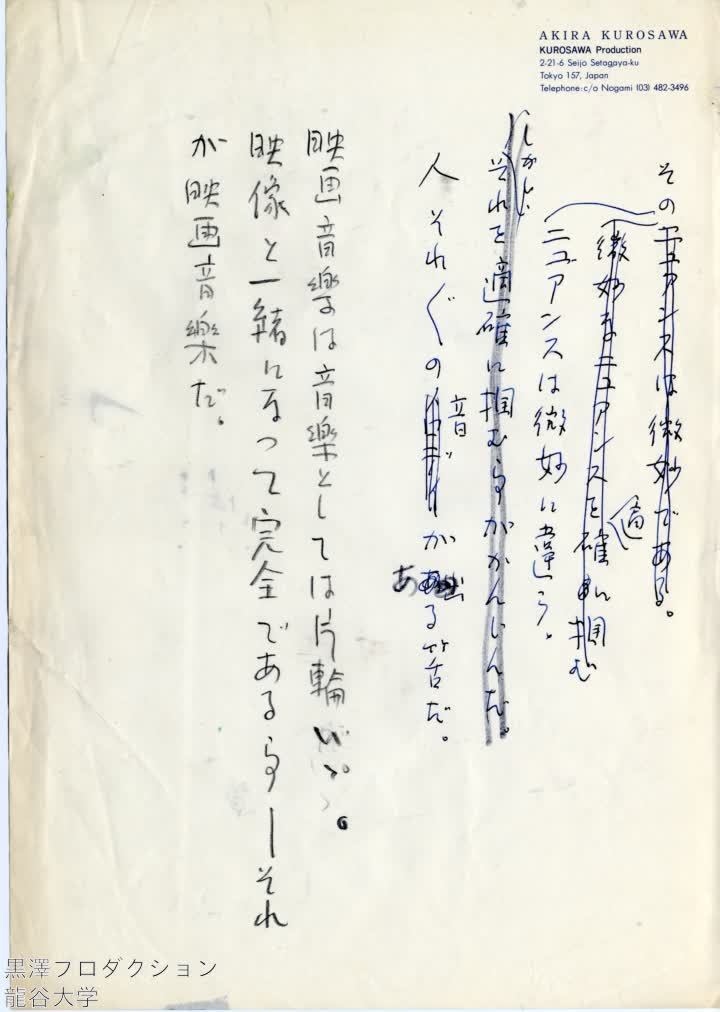 AKIRA KUROSAWA
KUROSAWA Production
2-21-6 Seijo Setagaya-ku
Tokyo 157, Japan
Telephone: c/o Nogami (03) 482-3496
そのニュアンスは微妙である。
微妙なニュアンスを適確に掴む
ニュアンスは微妙に違う。
しかし、
それを適確に掴む事がかんじんだ。
人それ〲の音がある筈だ。
映画音楽は音楽としては片輪でいゝ。
映像と一緒になって完全である事ーそれ
が映画音樂だ。
黒澤プロダクション
龍谷大学